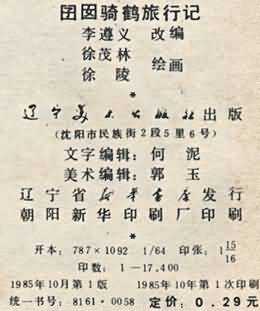 团因骑鹤旅行记
李遵义 改编
徐茂林
徐陵 绘画
*
辽宁美术出版社出版
(沈阳市民族街2段5里6号)
文字编辑：何泥
美术编辑：郭玉
辽宁省新华书店发行
朝阳新华印刷厂印刷
*
开本：787×1092 1/64 印张：1 15/16
印数：1—17,400
1985年10月第1版 1985年10年第1次印刷
统一书号：8161·0058 定价：0.29元